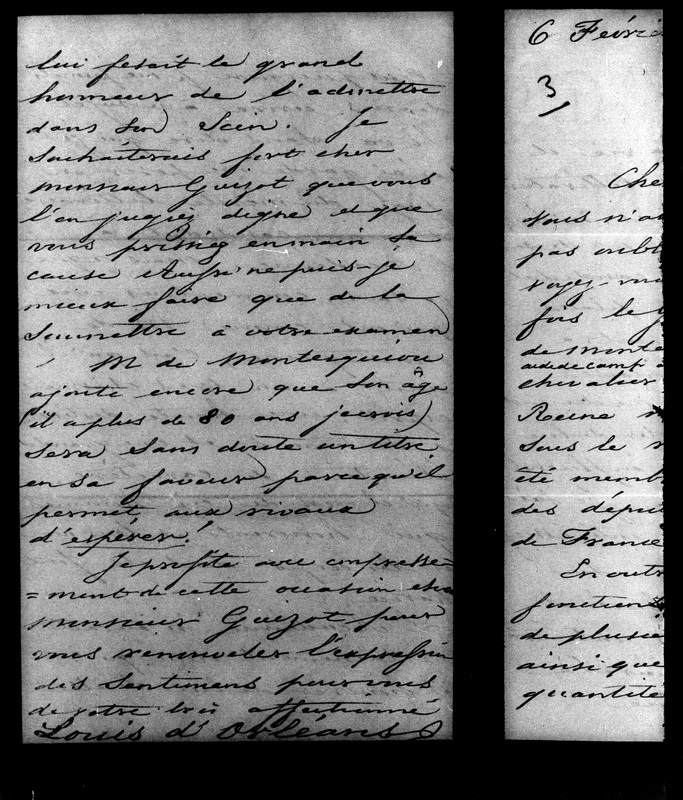 lui ferait le grand
honneur de l'admettre
dans son Sein. Je
Souhaiterais fort cher
monsieur Guizot que vous
l'en jugiez digne et que
vous prissiez en main Sa
cause Aussi ne puis-je
mieux faire que de la
Soumettre à votre examen
M de Montesquiou
ajoute encore que Son âge
(il a plus de 80 ans je crois)
Sera Sans doute un titre
en Sa faveur parce qu'il
permet aux rivaux
d'espérer!
Je profite avec empresse=
=ment de cette occasion cher
monsieur Guizot pour
vous renouveler l'expression
des Sentimens pour vous
de votre très affectionné
Louis d'Orléans
6 Févri
3
Che
Vous n'a
pas oubl
voyez-
fois le
de monte
aide de camp
chevalier
Reine
Sous le
été memb
des dépu
de France
En outr
fonctions
de plusie
ainsi que
quantité